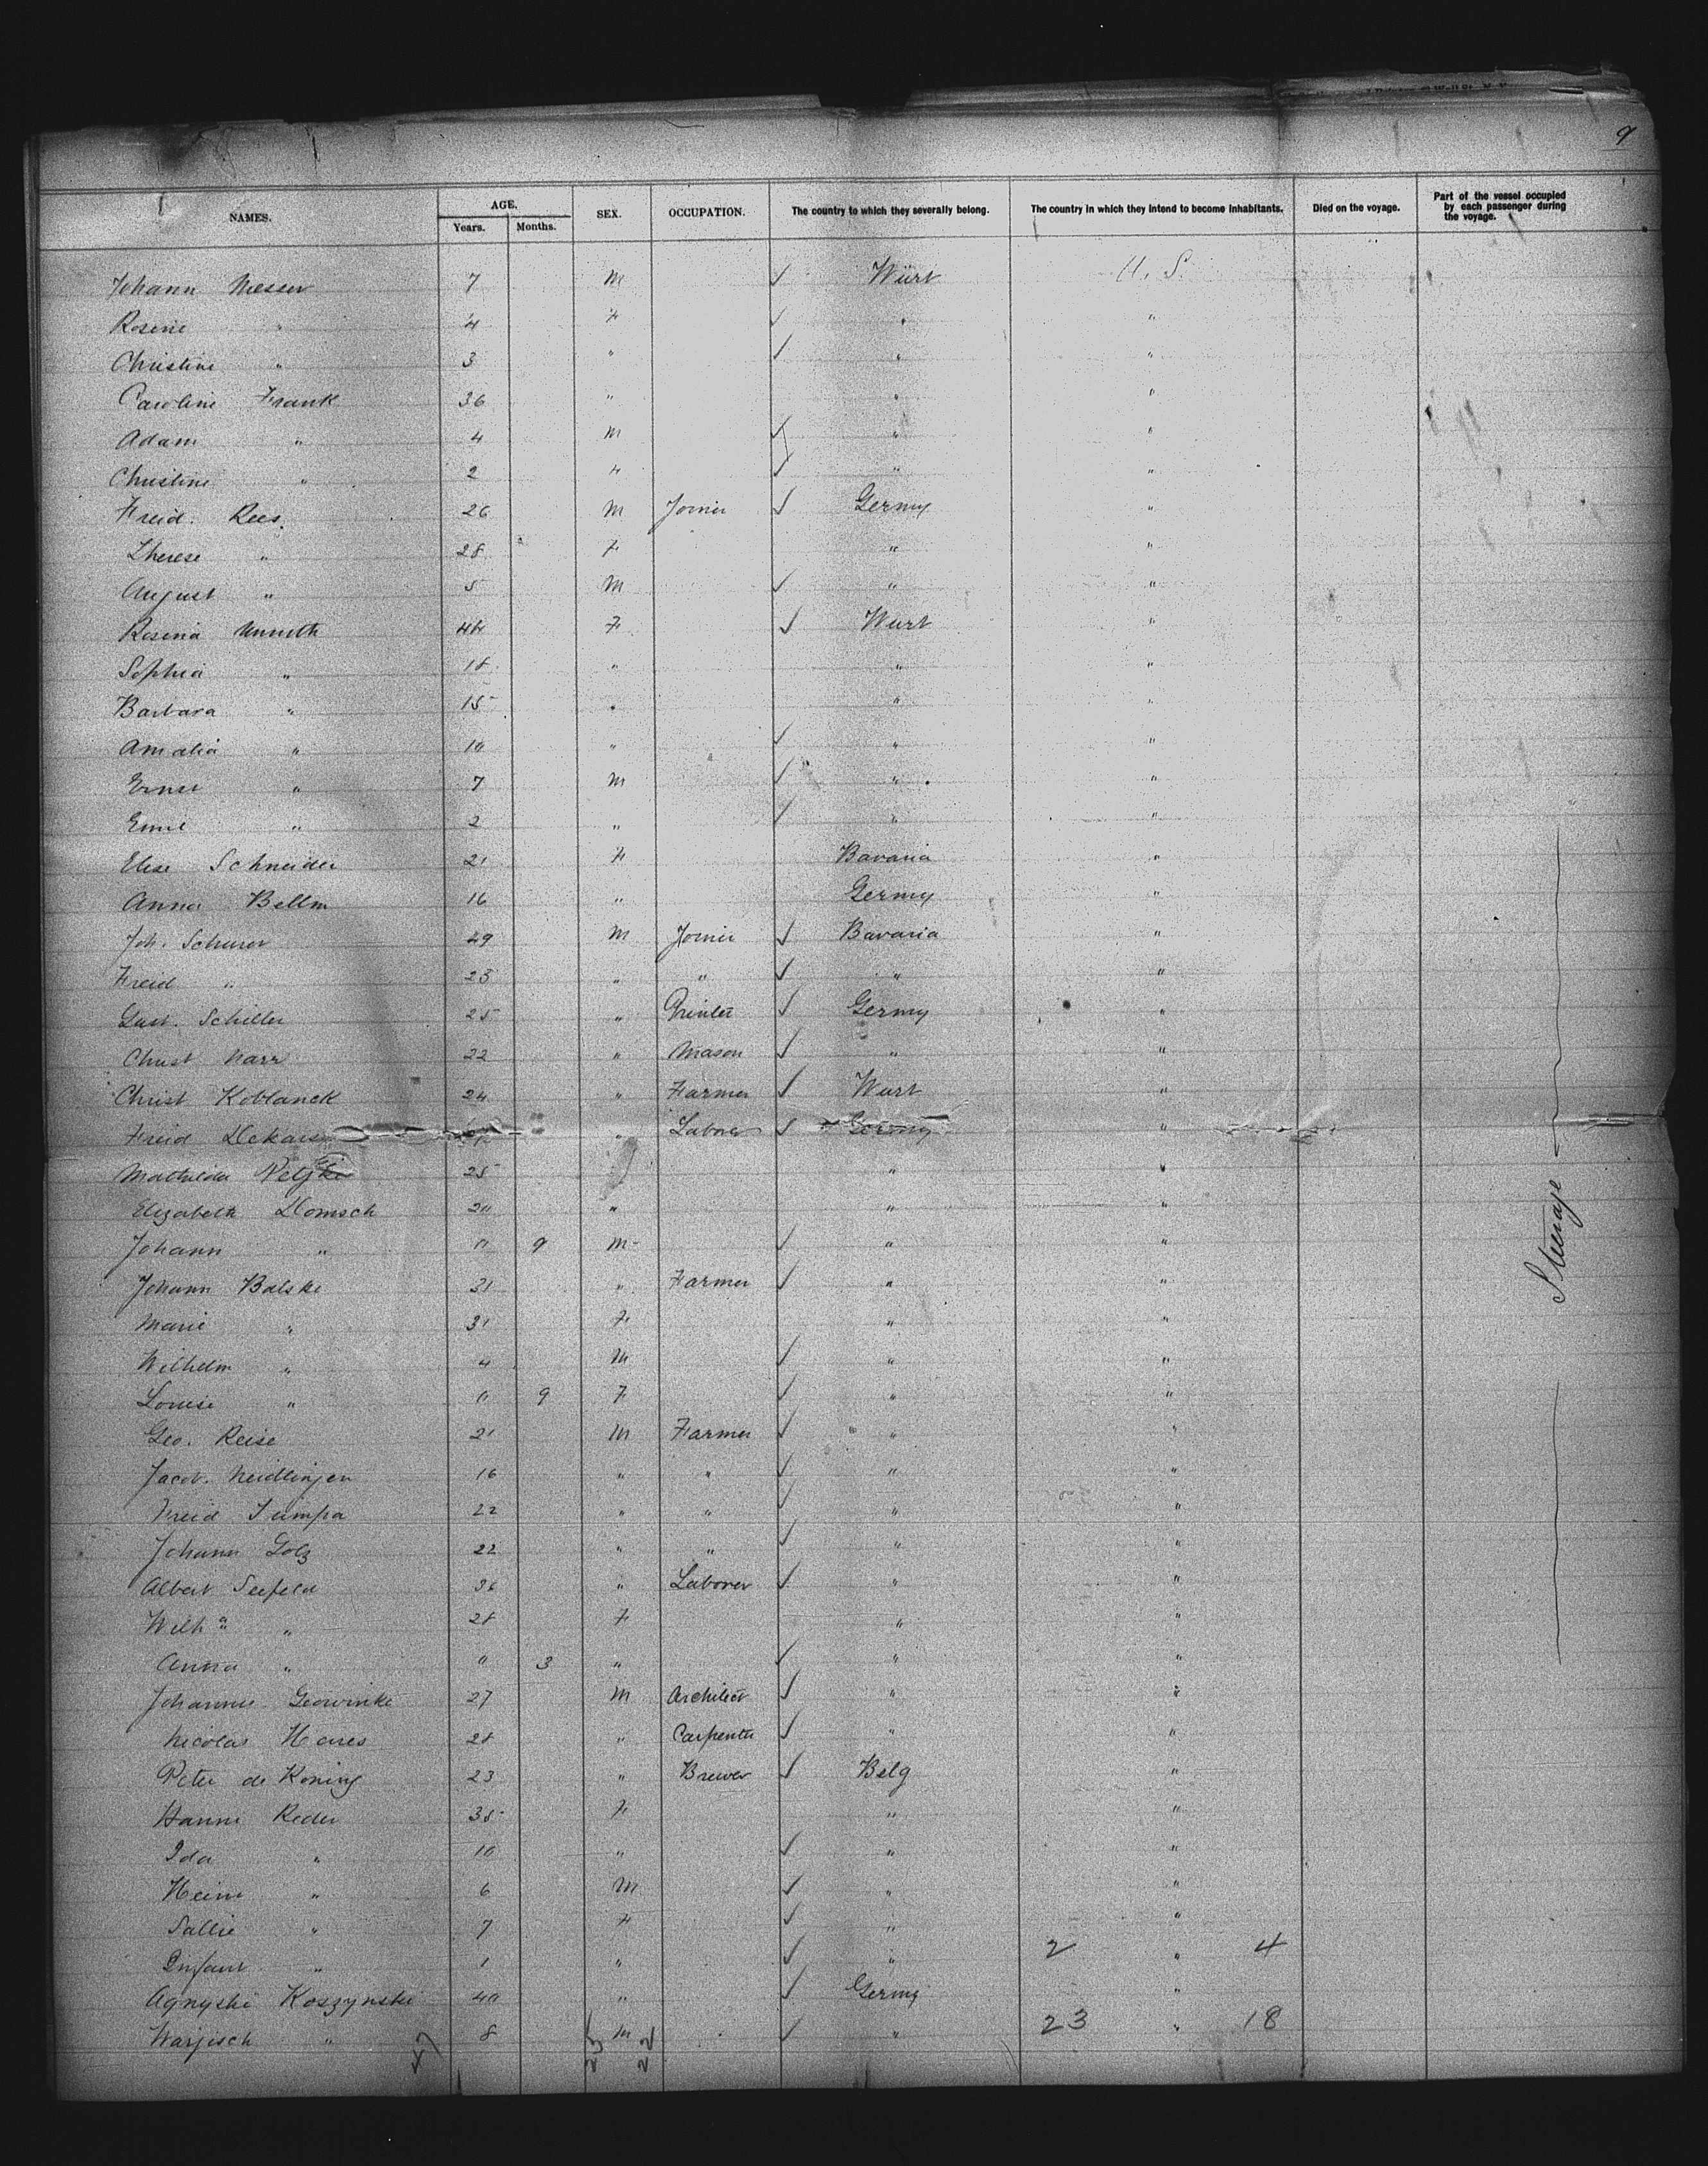 9
NAMES. AGE. Years. Months. SEX. OCCUPATION. The country to which they severally belong. The country in which they intend to become inhabitants. Died on the voyage. Part of the vessel occupied by each passenger during the voyage.
Johann Messer 7 M ✓ Würt U. S.
Rosine " 4 F ✓ " "
Christine " 3 " ✓ " "
Caroline Frank 36 " " "
Adam " 4 M ✓ " "
Christine " 2 F ✓ " "
Freid. Rees 26 M Joiner ✓ Germy "
Therese " 28 F " "
August " 5 M ✓ " "
Rosina 44 F ✓ Wurt "
Sophia " 18 " " "
Barbara " 15 " " "
Amalia " 10 " ✓ " "
Ernst " 7 M ✓ " "
Emil " 2 " ✓ " "
Elise Schneider 21 F Bavaria "
Anna Bellm 16 " Germy "
Joh. Scheurer 49 M Joiner ✓ Bavaria "
Freid " 23 " " ✓ " "
Gust. Schiller 25 " Printer ✓ Germy "
Christ Narr 22 " Mason ✓ " "
Christ Koblanck 24 " Farmer ✓ Wurt "
Freid " Laborer ✓ Germy "
Mathilda 25 " "
Elizabeth Domsch 20 " " "
Johann " 0 9 M ✓ " "
Johann Balske 31 " Farmer ✓ " "
Marie " 31 F " "
Wilhelm " 4 M ✓ " "
Louise " 0 9 F ✓ " "
Geo. Reise 21 M Farmer ✓ " "
Jacob. Neidlinjen 16 " " ✓ " "
Freid Tumpa 22 " " ✓ " "
Johann Golz 22 " " ✓ " "
Albert Seefeld 36 " Laborer ✓ " "
Wilhª " 28 F " "
Anna " 0 3 " ✓ " "
Johannes 27 M Architect ✓ " "
Nicolas Hares 28 " Carpenter ✓ " "
Peter de Koning 23 " Brewer ✓ Belg "
Hanne Reder 35 F " "
Ida " 10 " ✓ " "
Heinr " 6 M ✓ " "
Sallie " 7 F ✓ " "
Infant " 1 " ✓ " 2 " 4
Agnyski Koszynski 40 " ✓ Germy "
Warjisch " 8 M ✓ " 23 " 18
47 25 22
Steerage